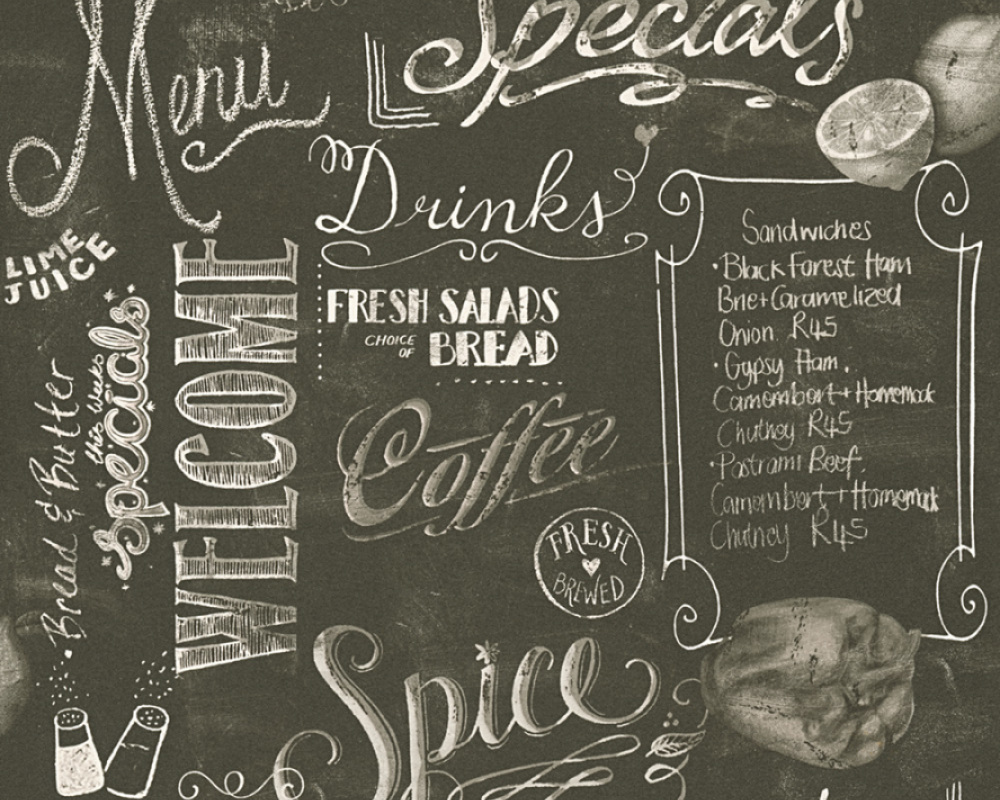 Menu
Specials
Drinks
LIME
JUICE
FRESH SALADS
CHOICE
OF
BREAD
Bread & Butter
this weeks
specials
WELCOME
Coffee
FRESH
BREWED
Spice
Sandwiches
·Black Forest Ham
Brie+Caramelized
Onion R45
·Gypsy Ham.
Camembert+Homemak
Chutney R45
·Pastrami Beef.
Camembert+Homemak
Chutney R45